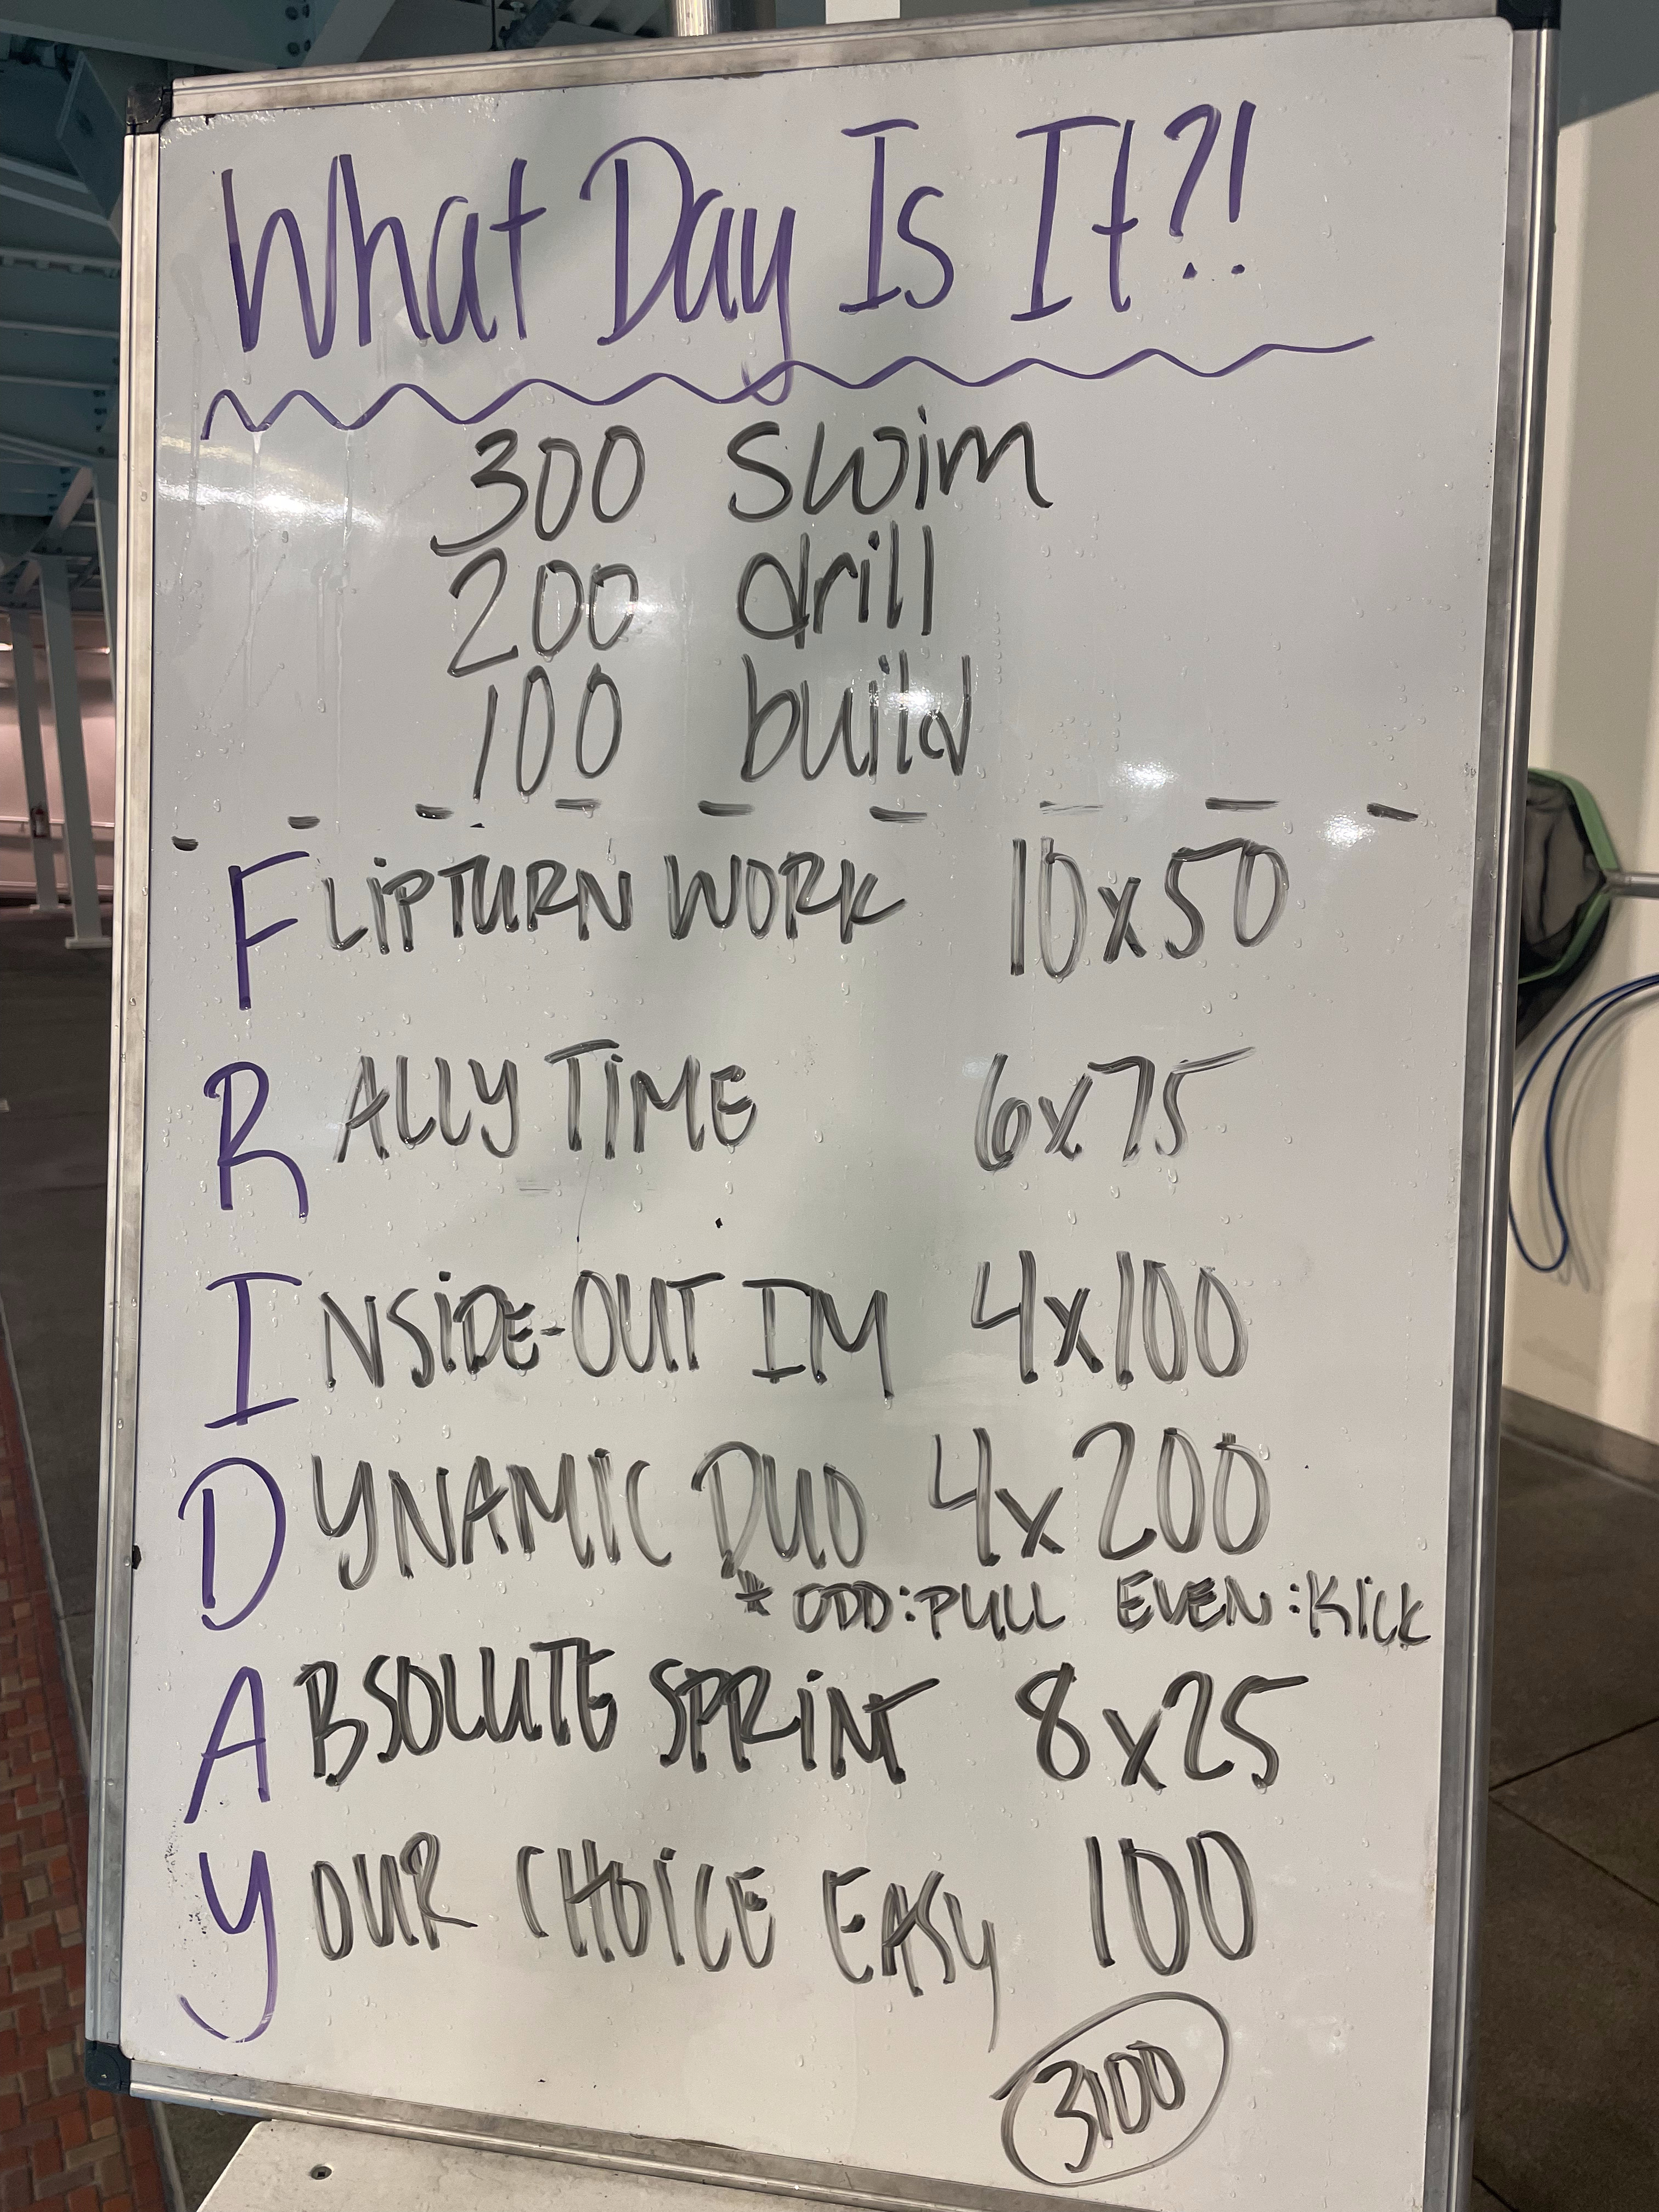 What Day Is It?!
300 swim
200 drill
100 build
FLIPTURN WORK 10x50
RALLY TIME 6x75
INSIDE-OUT IM 4x100
DYNAMIC DUO 4x200
* ODD:PULL EVEN:KICK
ABSOLUTE SPRINT 8x25
YOUR CHOICE EASY 100
3100